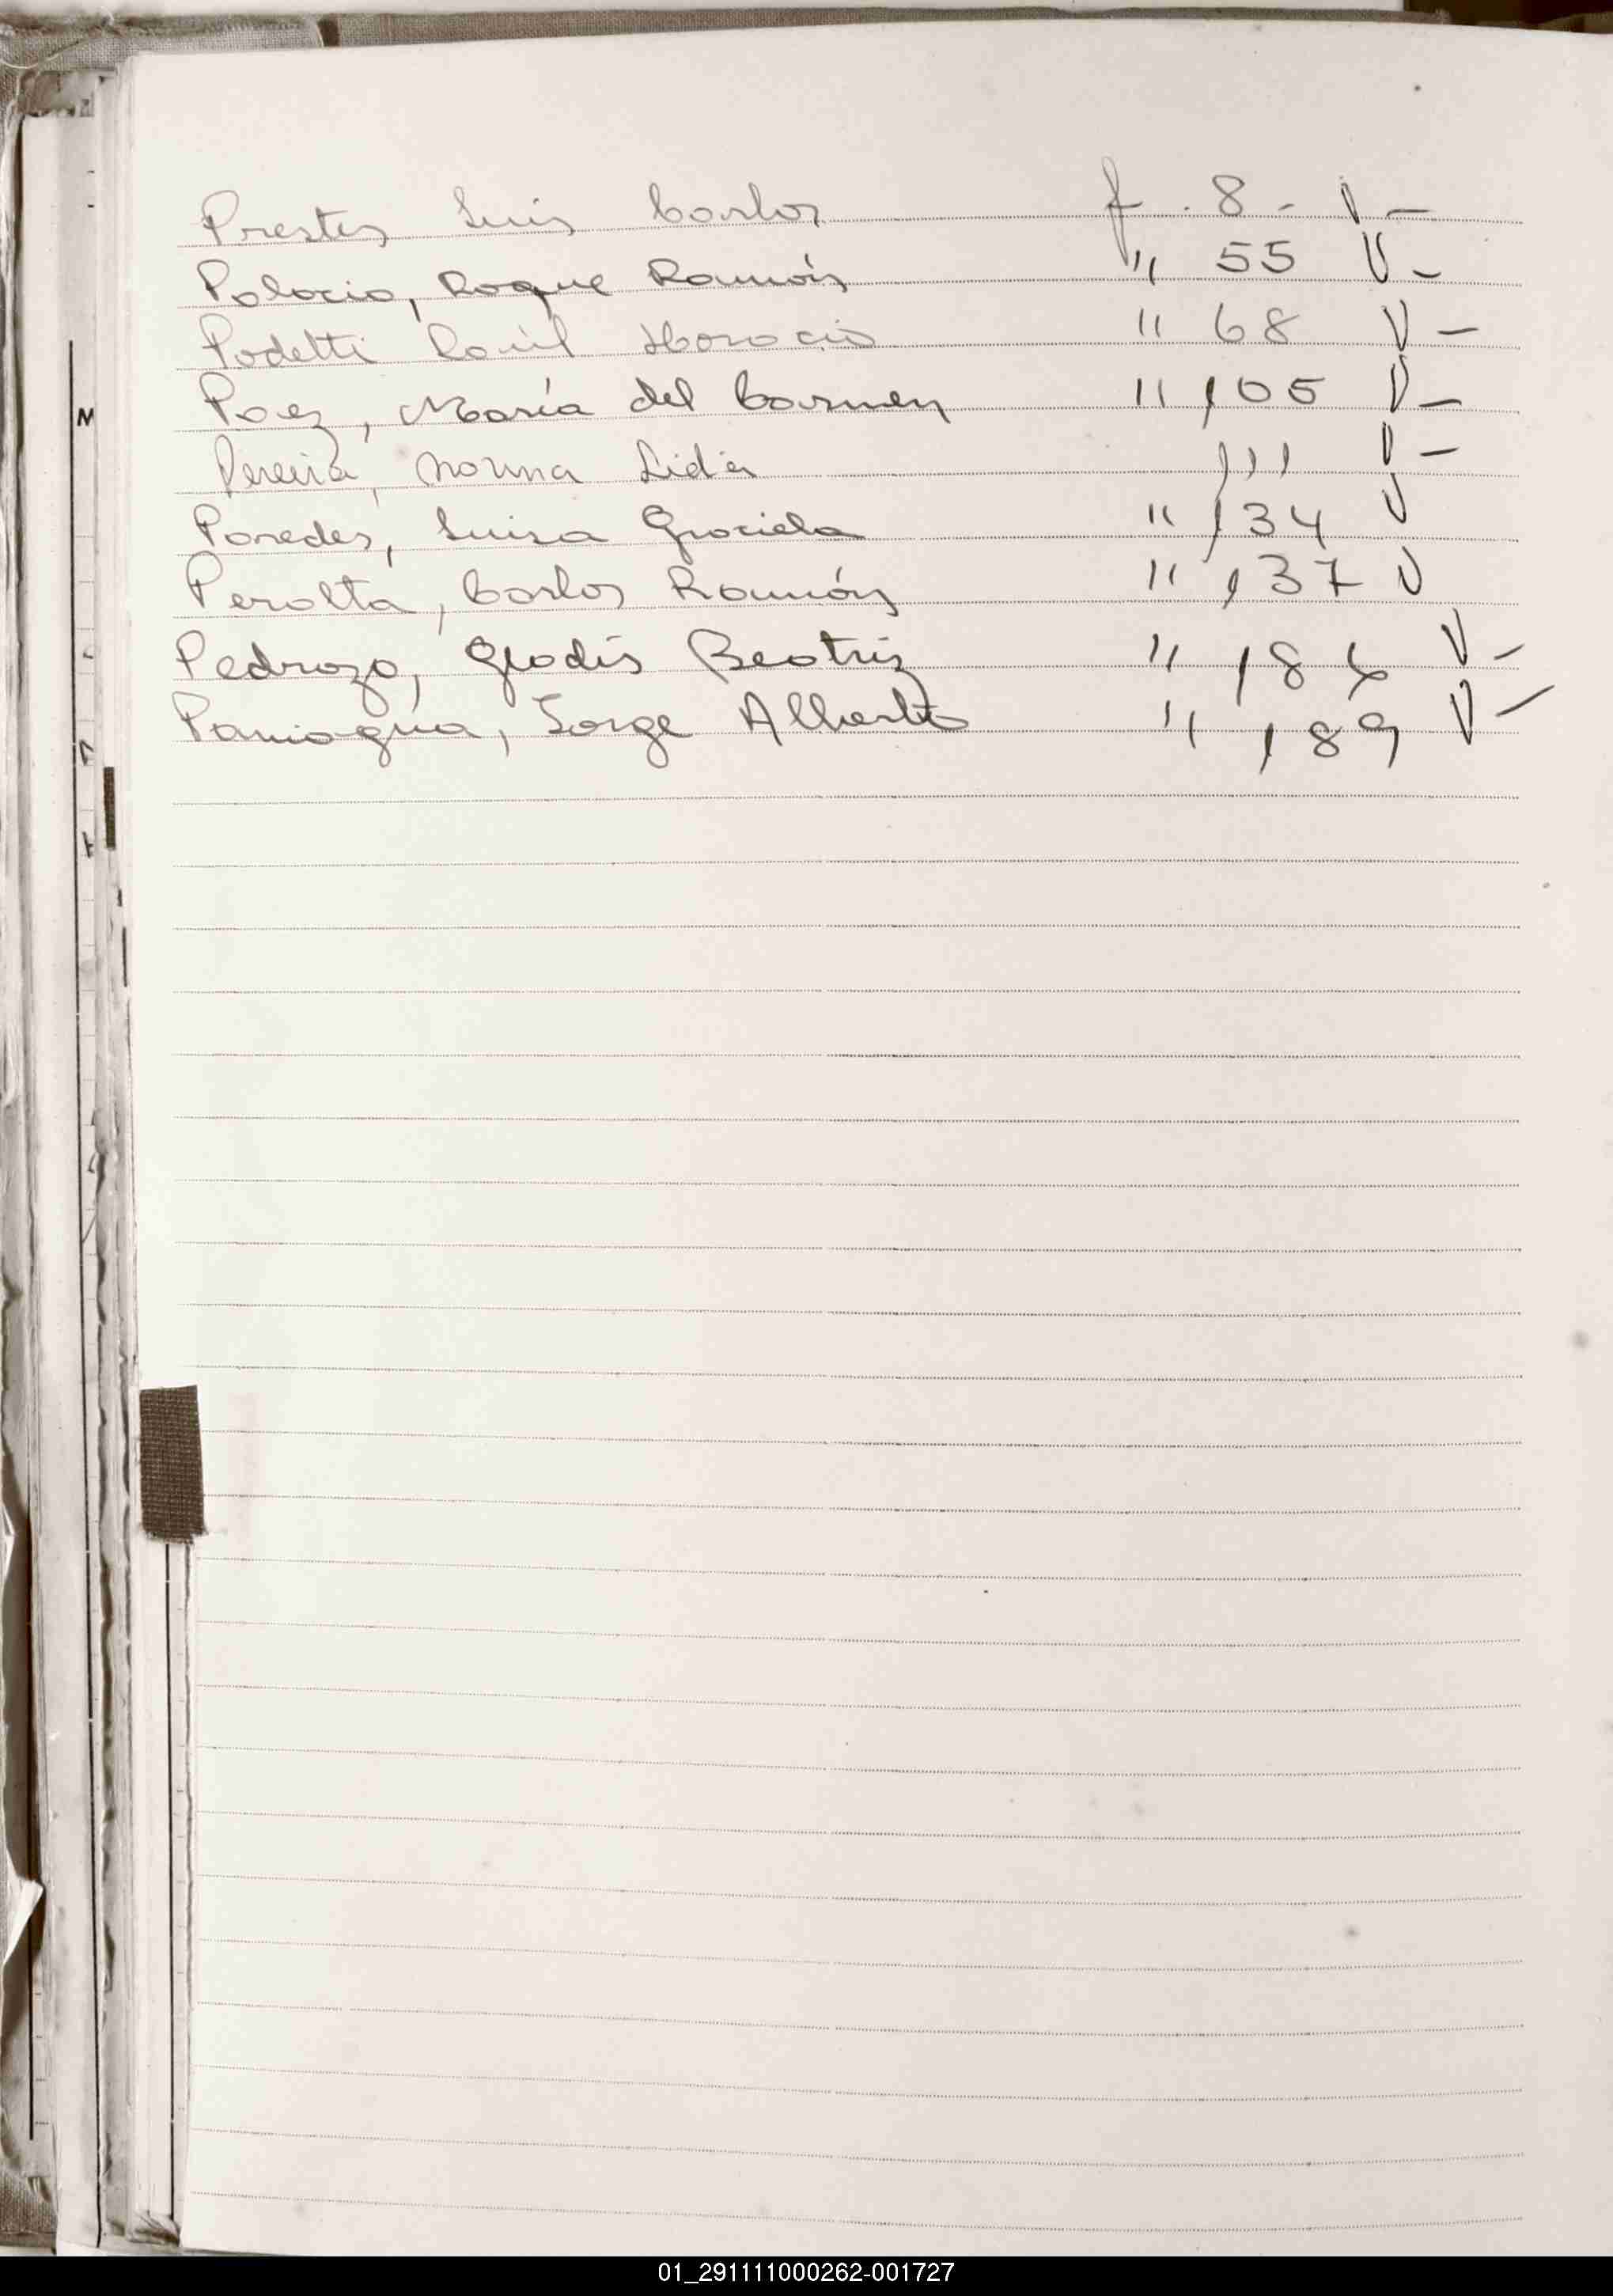 Prestes Luis Carlos f. 8 - V -
Palacio, Roque Ramón " 55 V -
Podetti Raúl Horacio " 68 V -
Paez, María del Carmen " 105 V -
Pereira, Norma Lidia 111 V -
Paredes, Luisa Graciela " 134 V
Peralta, Carlos Ramón " 137 V
Pedrozo, Gladis Beatriz " 186 V -
Paniagua, Jorge Alberto " 189 V -
01_291111000262-001727